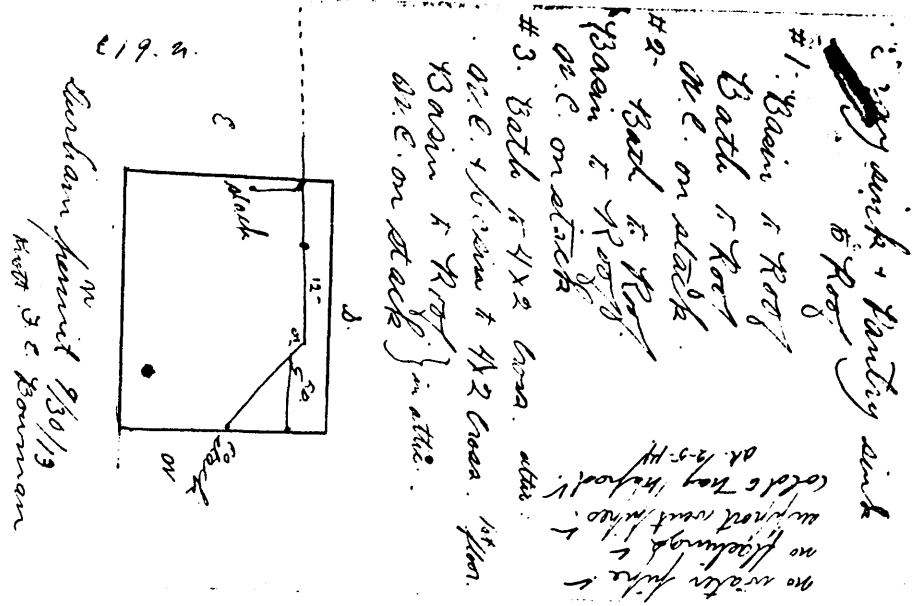 sink + Pantry sink
to Roof
#1. Basin to Roof
Bath to Roof
W.C. on stack
#2- Bath to Roof
Basin to Roof
W.C. on stack
#3. Bath to 4x2 Cross. attic
W.C. & Basin to 4x2 Cross. 1st floor.
Basin to Roof } in attic.
W.C. on stack
no water pipe
no flashings
support vent pipes
trapped
ok. 12-5-14
S.
E
stack
12-
5-
to
stack
W
permit 9/30/13
J. E. Bowman